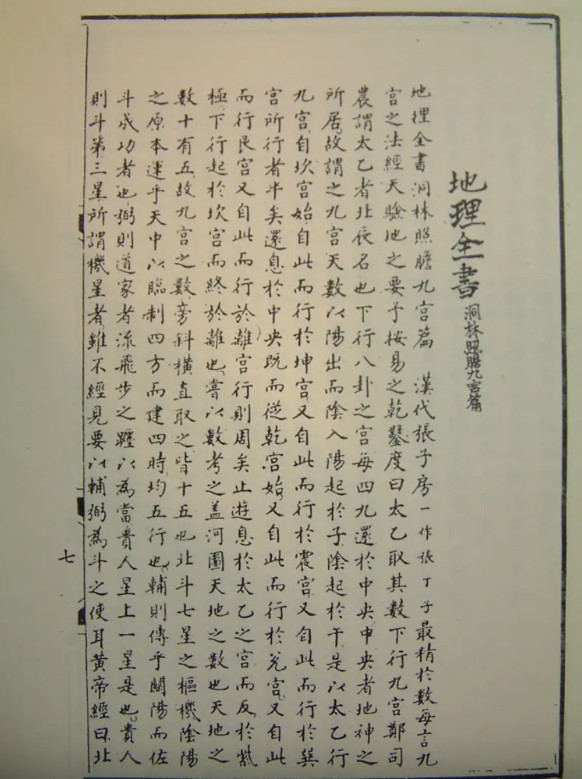 地理全書洞林照膽九宮篇
地理全書洞林照膽九宮篇 漢代張子房一作張丁子最精於數每言九
宮之法經天驗地之要予按易之乾鑿度曰太乙取其數下行九宮鄭司
農謂太乙者北辰名也下行八卦之宮每四九還於中央中央者地神之
所居故謂之九宮天數以陽出而陰入陽起於子陰起於午是以太乙行
九宮自坎宮始自此而行於坤宮又自此而行於震宮又自此而行於巽
宮所行者半矣還息於中央既而從乾宮始又自此而行於兌宮又自此
而行艮宮又自此而行於離宮行則周矣止遊息於太乙之宮而反於紫
極下行起於坎宮而終於離也嘗以數考之盖河圖天地之數也天地之
數十有五故九宮之數旁斜橫直取之皆十五也北斗七星之樞機陰陽
之原本運乎天中以臨制四方而建四時均五行也輔則傳乎開陽而佐
斗成功者也弼則道家者流飛步之躔以為當貴人星上一星是也貴人
則斗第三星所謂機星者雖不經見要以輔弼為斗之使耳黃帝經曰北
七